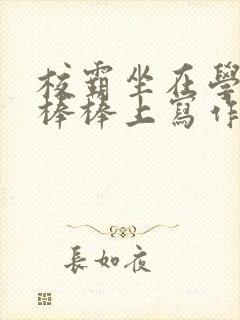 校霸坐在學
棒棒上寫作
長如夜